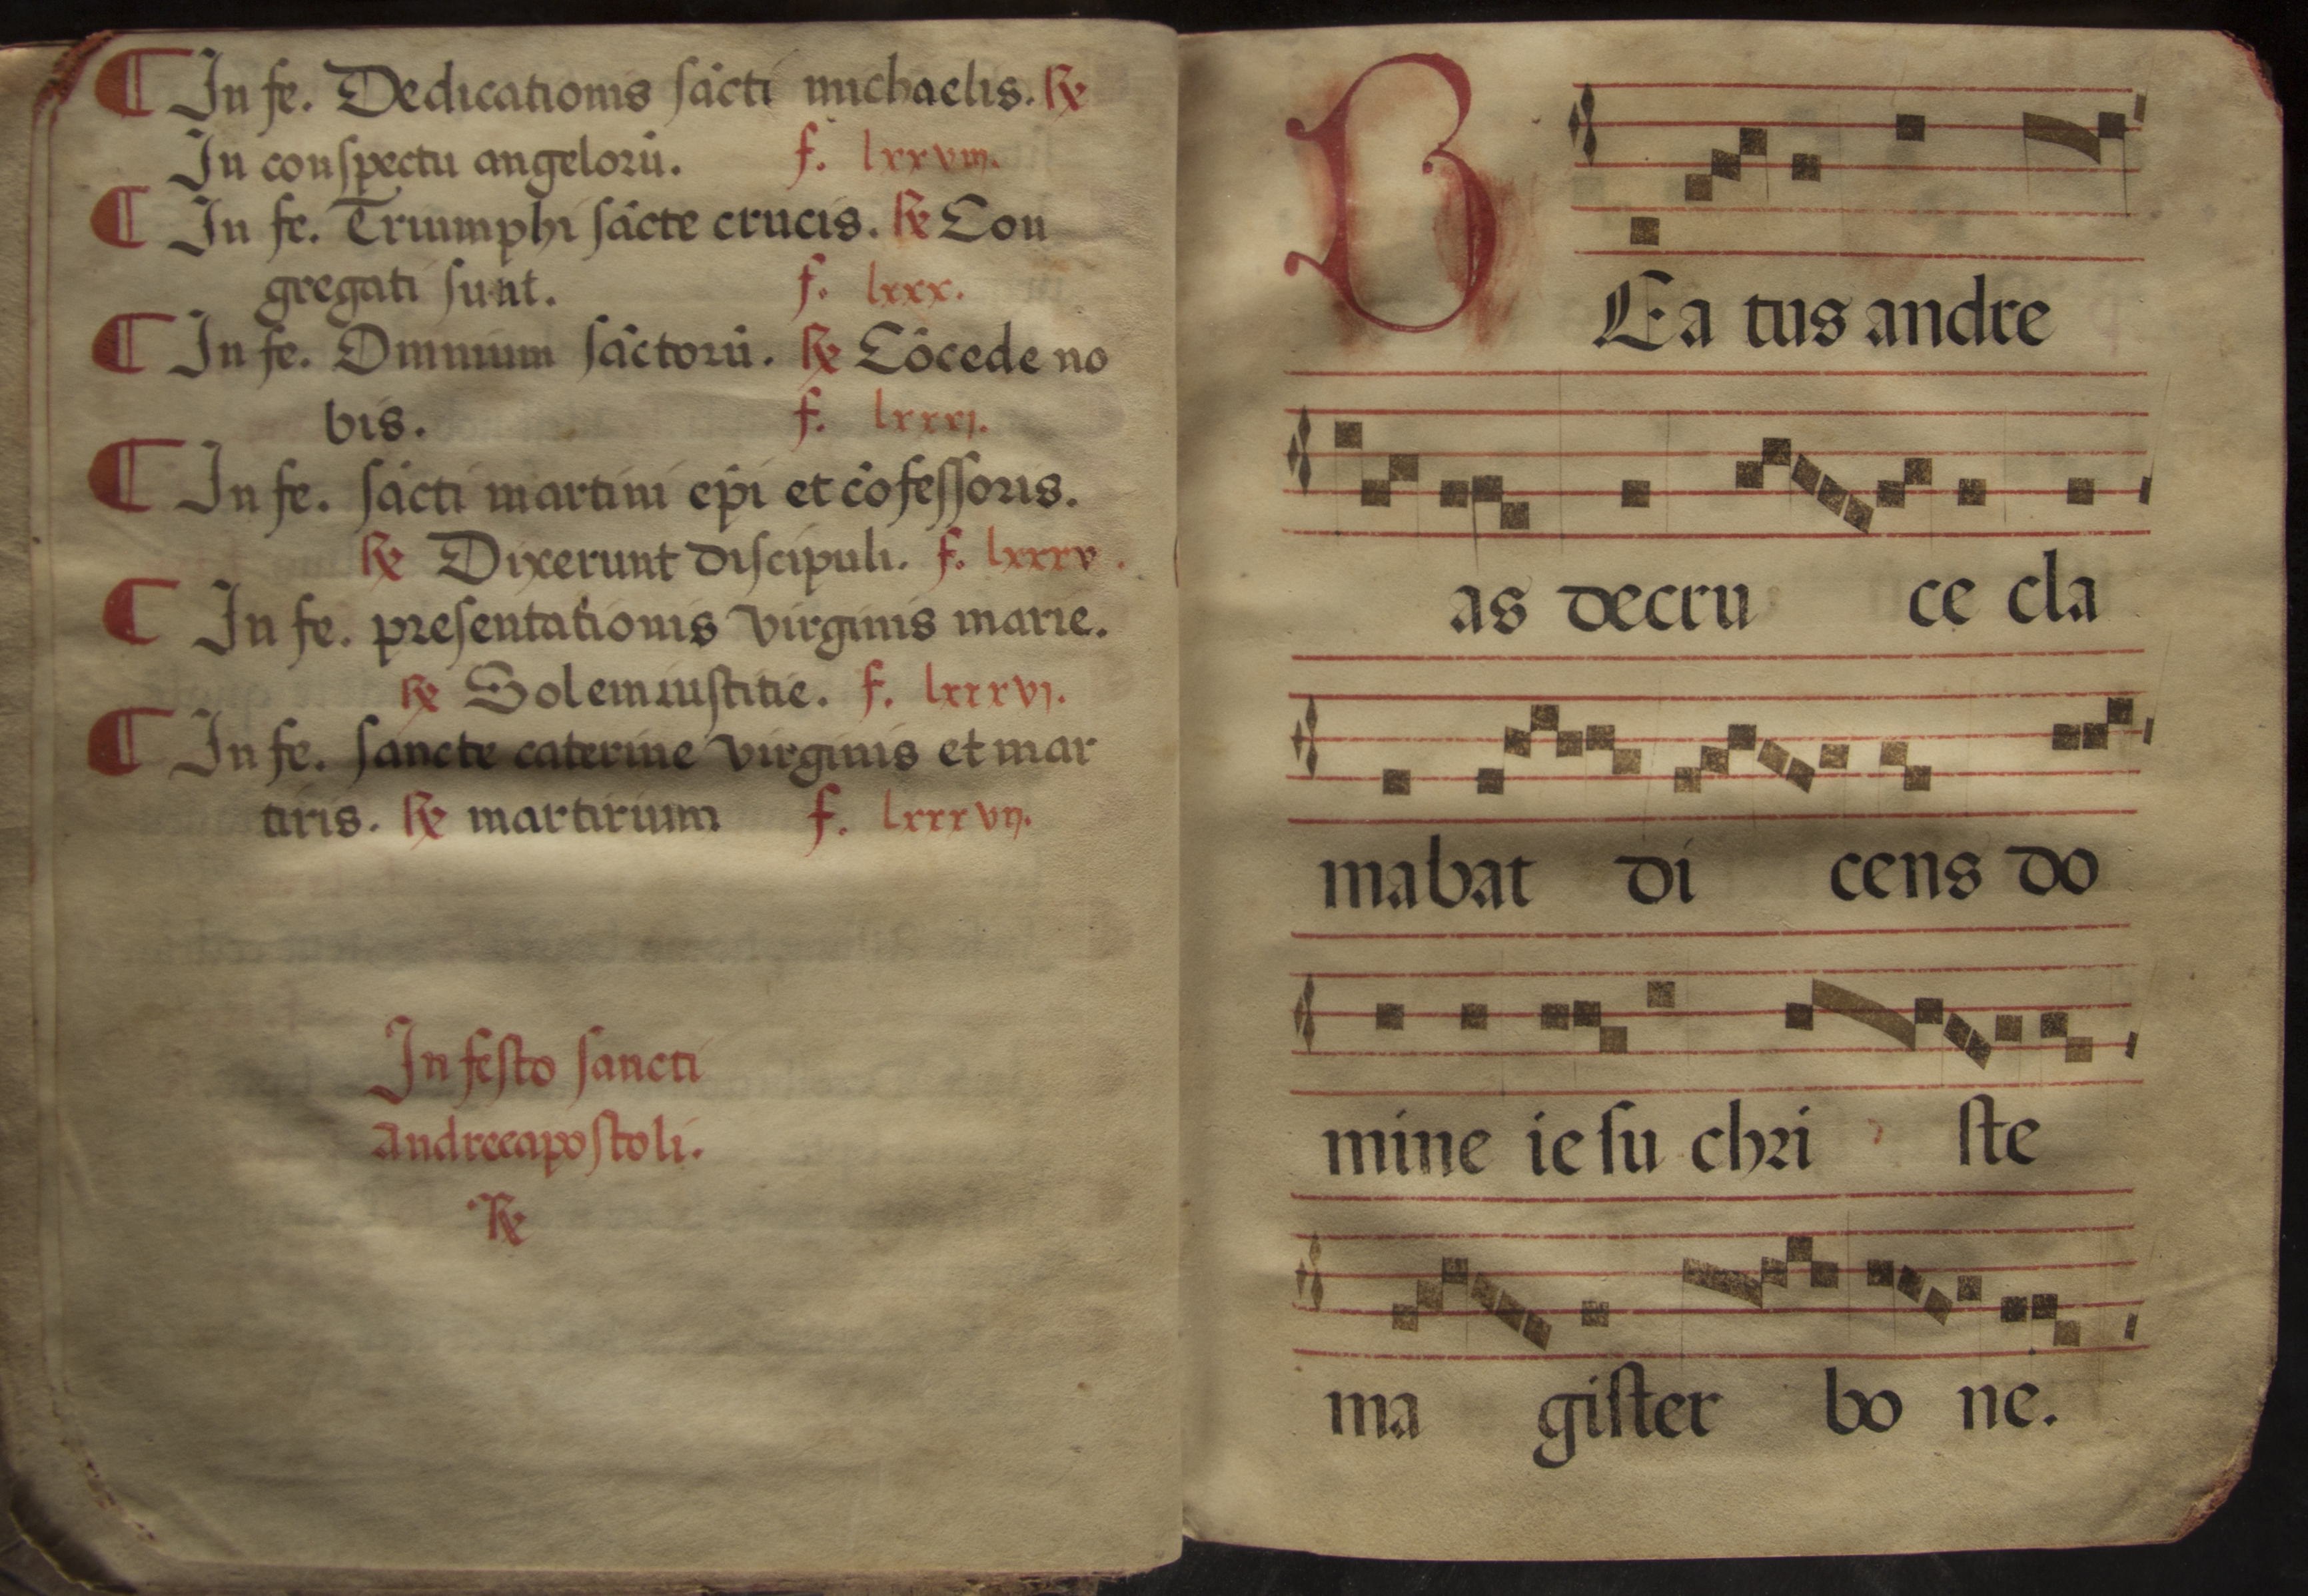 ¶ In fe. Dedicationis sācti michaelis. ℟
In conspectu angelorū. f. lxxviij.
¶ In fe. Triumphi sācte crucis. ℟ Con
gregati sunt. f. lxxx.
¶ In fe. Omnium sāctorū. ℟ Cōcede no
bis. f. lxxxj.
¶ In fe. sācti martini ep̄i et cōfessoris.
℟ Dixerunt discipuli. f. lxxxv.
¶ In fe. presentationis virginis marie.
℟ Solem iustitie. f. lxxxvj.
¶ In fe. sancte caterine virginis et mar
tiris. ℟ martirium f. lxxxvij.
In festo sancti
andree apostoli.
℟
BEa tus andre
as decru ce cla
mabat di cens do
mine iesu chri ste
ma gister bo ne.